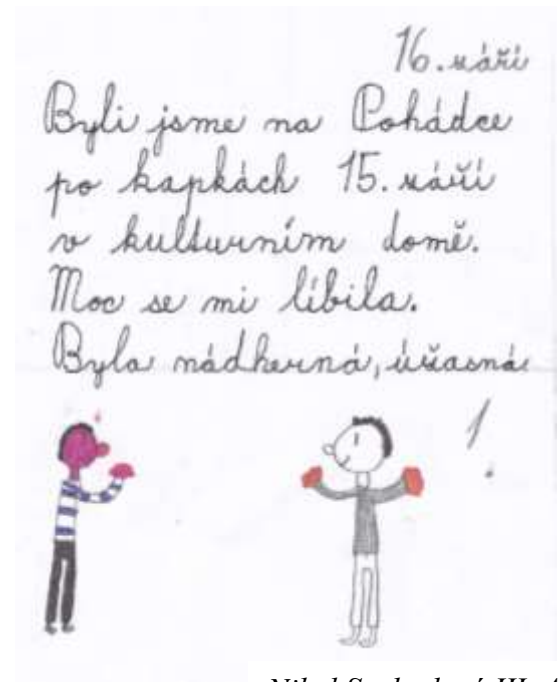 16. září
Byli jsme na Pohádce
po kapkách 15. září
v kulturním domě.
Moc se mi líbila.
Byla nádherná, úžasná
!